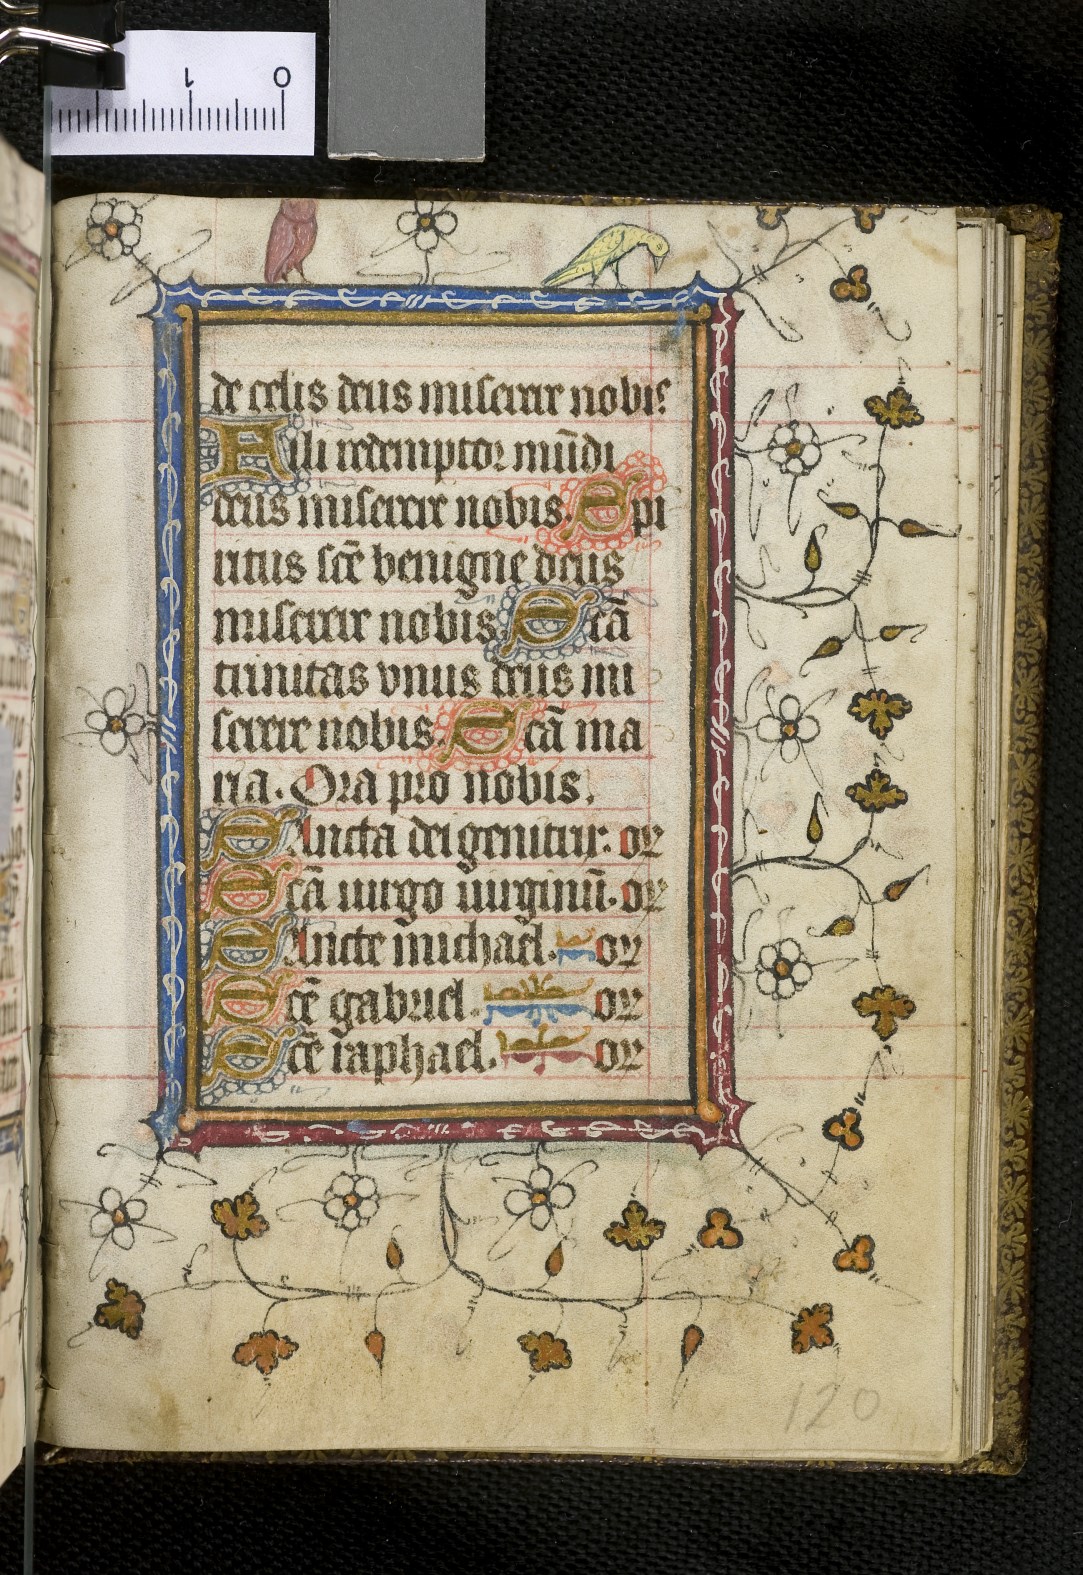 1 0
de celis deus miserere nobis.
Fili redemptor mūdi
deus miserere nobis. Spi
ritus scē benigne deus
miserere nobis. Scā
trinitas vnus deus mi
serere nobis. Scā ma
ria. Ora pro nobis.
Sancta dei genitrix. or
Scā uirgo uirginū. or
Sancte michael. or
Scē gabriel. or
Scē raphael. or
120